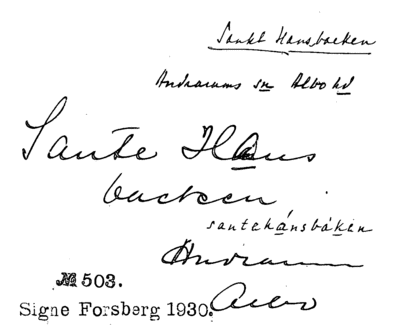 Sankt Hansbacken
Andrarums sn Albo hd
Sante Hans
backen
santehánsbáken
Andrarum
№ 503.
Signe Forsberg 1930. Albo